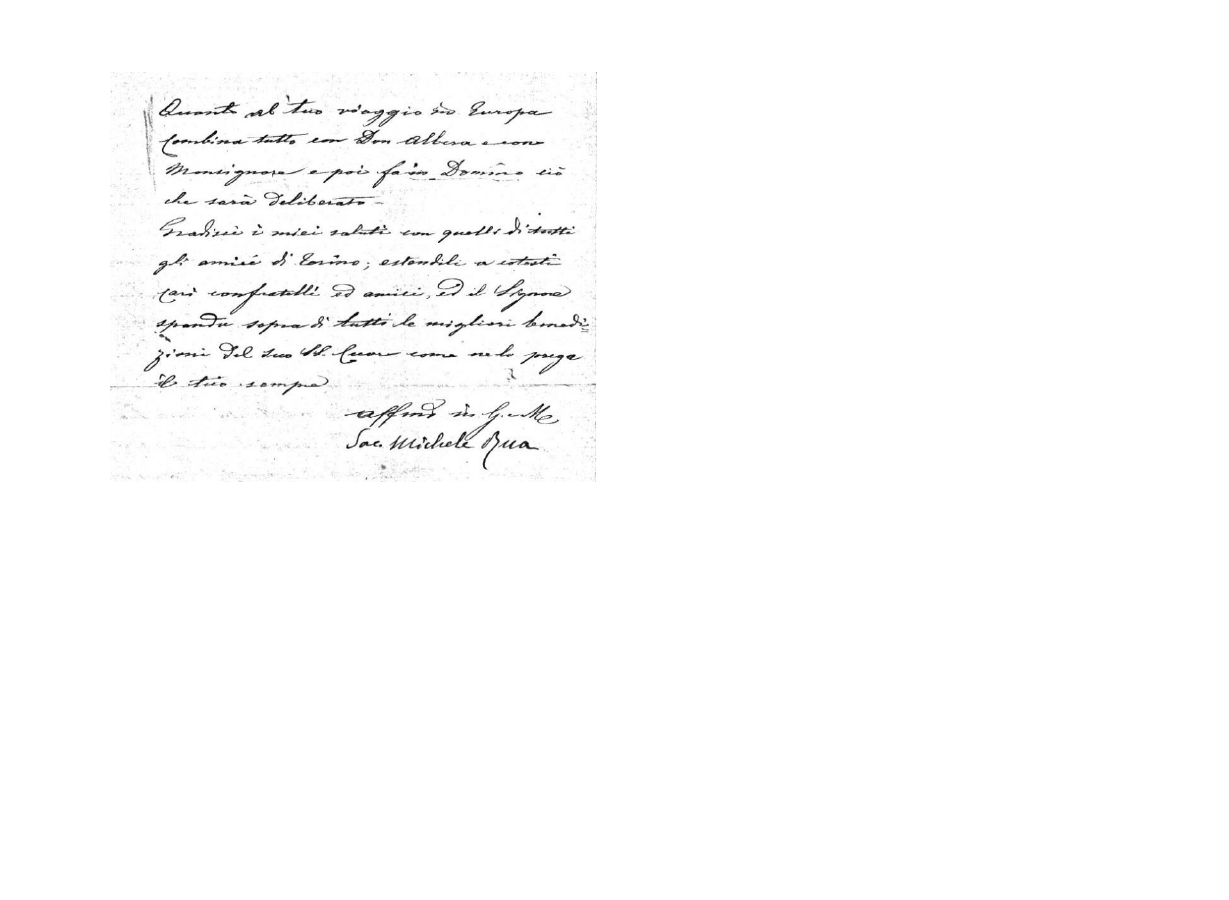 Quanto al tuo viaggio in Europa
Combina tutto con Don Albera e con
Monsignore e poi fa in Domino ciò
che sarà deliberato –
Gradisci i miei saluti con quelli di tutti
gli amici di Torino; estendili a cotesti
cari confratelli ed amici, ed il Signore
spanda sopra di tutti le migliori benedi=
zioni del suo SS. Cuore come ne lo prega
il tuo sempre
affmo in G. e M.
Sac. Michele Rua